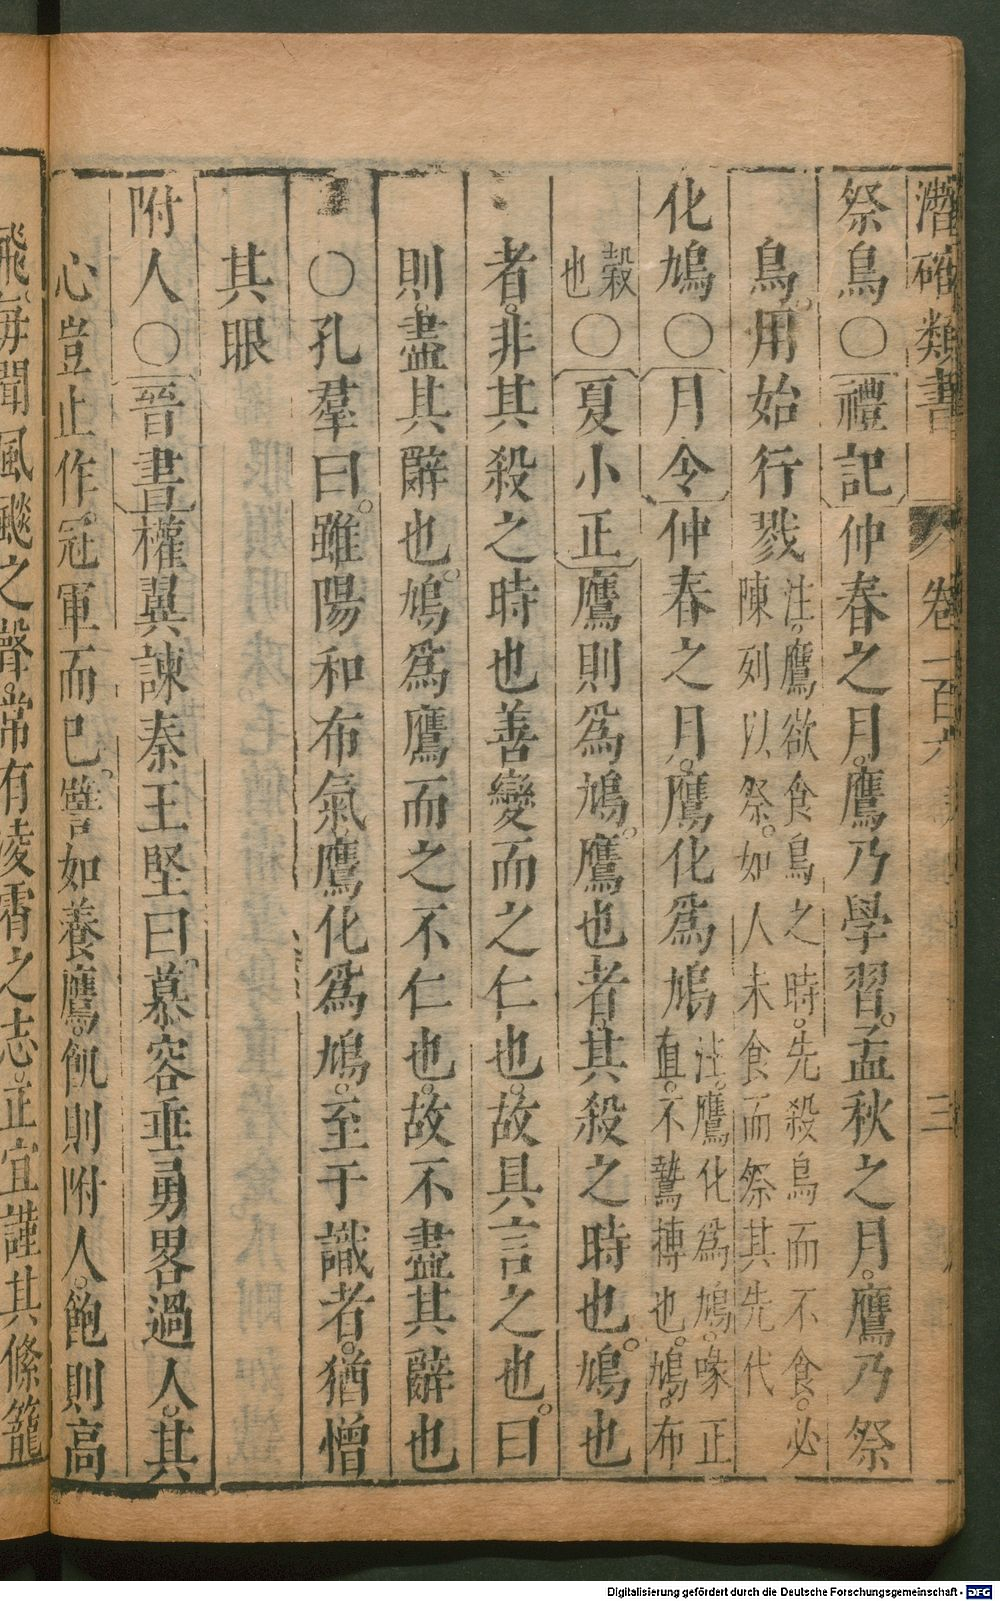 潛確類書 卷一百六 三
祭鳥〇禮記仲春之月。鷹乃學習。孟秋之月。鷹乃祭
鳥。用始行戮注。鷹欲食鳥之時。先殺鳥而不食。必
陳列以祭。如人未食而祭其先代
化鳩〇月令仲春之月。鷹化爲鳩注。鷹化爲鳩。喙正
直。不鷙搏也。鳩。布
穀
也〇夏小正鷹則爲鳩。鷹也者。其殺之時也。鳩也
者。非其殺之時也善變而之仁也。故具言之也。曰
則。盡其辭也。鳩爲鷹而之不仁也。故不盡其辭也
〇孔羣曰。雖陽和布氣鷹化爲鳩。至于識者。猶憎
其眼
附人〇晉書權翼諫秦王堅曰。慕容垂勇畧過人。其
心豈止作。冠軍而已。譬如養鷹。飢則附人。飽則高
飛。每聞風飈之聲。常有凌霄之志。正宜謹其絛籠
Digitalisierung gefördert durch die Deutsche Forschungsgemeinschaft - DFG